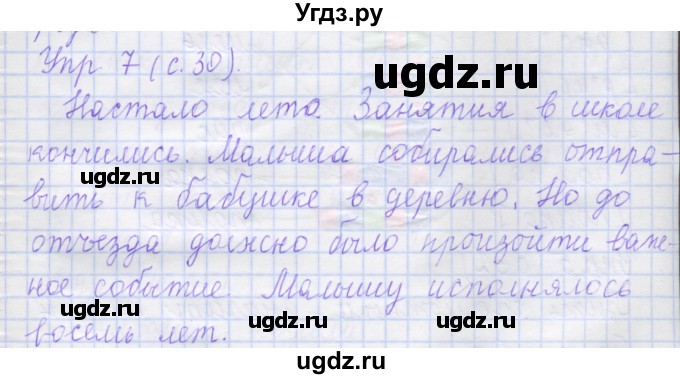 Угдз.ру
Упр 7 (с. 30).
ugdz.ru
Настало лето. Занятия в школе
кончились. Малыша собирались отпра-
ugdz.ru
вить к бабушке в деревню. Но до
отъезда должно было произойти важ-
ное событие. Малышу исполнялось
ugdz.ru ugdz.ru ugdz.ru
восемь лет.
ugdz.ru